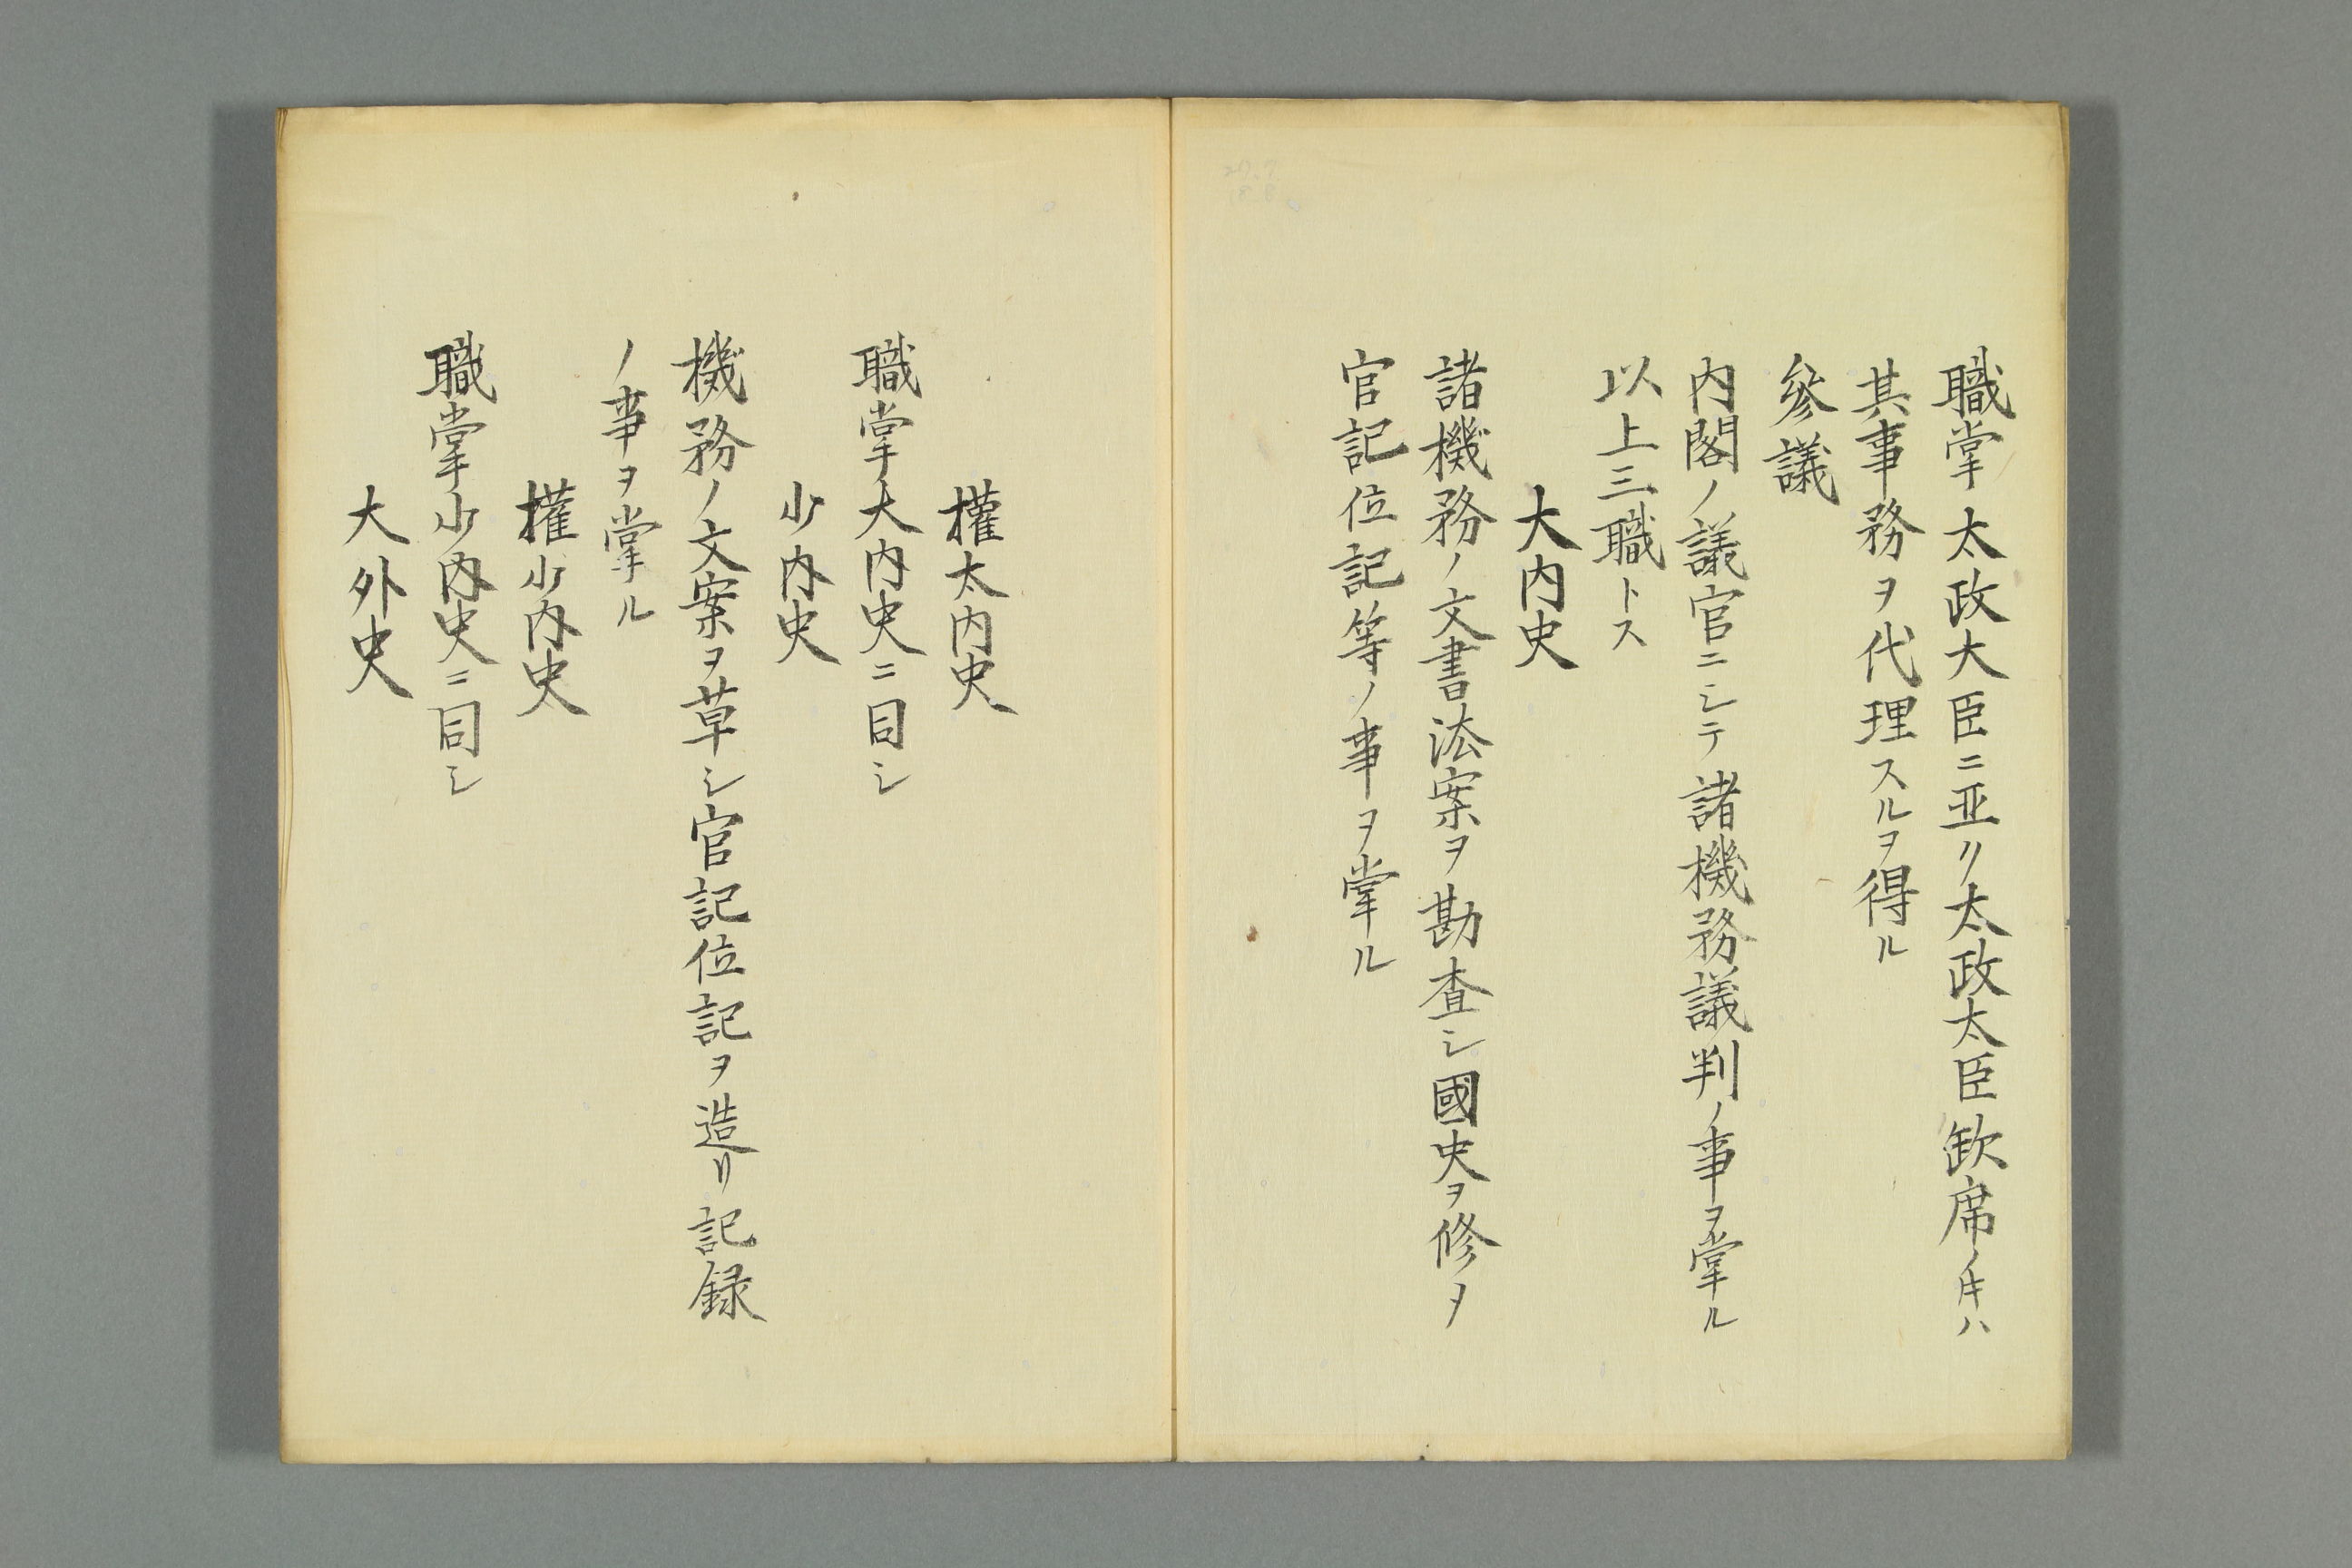 職掌太政大臣ニ亚リ太政太臣欽席ノ𪜈ハ
其事務ヲ代理スルヲ得ル
參議
内閣ノ議官ニシテ諸機務議判ノ事ヲ掌ル
以上三職トス
大内史
諸機務ノ文書法案ヲ勘査シ國史ヲ修メ
官記位記等ノ事ヲ掌ル
權太内史
職掌大内史ニ同シ
少内史
機務ノ文案ヲ草シ官記位記ヲ造リ記録
ノ事ヲ掌ル
權少内史
職掌少内史ニ同シ
大外史